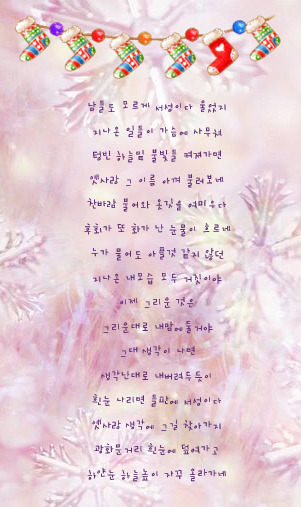 남들도 모르게 서성이다 울었지
지나온 일들이 가슴에 사무쳐
텅빈 하늘밑 불빛들 켜져가면
옛사랑 그 이름 아껴 불러보네
찬바람 불어와 옷깃을 여미우다
후회가 또 화가 난 눈물이 흐르네
누가 물어도 아플것 같지 않던
지나온 내모습 모두 거짓이야
이제 그리운 것은
그리운대로 내맘에둘거야
그대 생각이 나면
생각난대로 내버려두듯이
흰눈 나리면 들판에 서성이다
옛사랑 생각에 그길 찾아가지
광화문거리 흰눈에 덮여가고
하얀눈 하늘높이 자꾸 올라가네